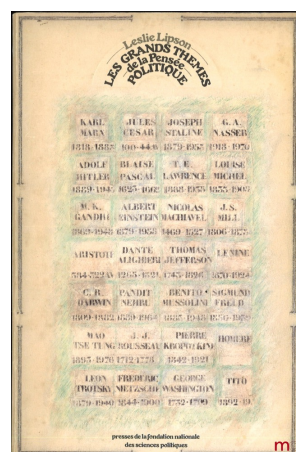 Leslie Lipson
LES GRANDS THEMES
de la Pensée
POLITIQUE
KARL MARX 1818-1883
JULES CESAR 100-44av
JOSEPH STALINE 1879-1953
G. A. NASSER 1918-1970
ADOLF HITLER 1889-1945
BLAISE PASCAL 1623-1662
T. E. LAWRENCE 1888-1935
LOUISE MICHEL
M. K. GANDHI 1869-1948
ALBERT EINSTEIN 1879-1955
NICOLAS MACHIAVEL 1469-1527
J. S. MILL 1806-1873
ARISTOTE
DANTE ALIGHIERI
THOMAS JEFFERSON
LENINE 1870-1924
C. R. DARWIN 1809-1882
PANDIT NEHRU 1889-1964
BENITO MUSSOLINI
SIGMUND FREUD
MAO TSE TUNG 1893-1976
J. J. ROUSSEAU 1712-1778
PIERRE KROPOTKINE 1842-1921
HOMERE
LEON TROTSKY 1879-1940
FREDERIC NIETZSCHE 1844-1900
GEORGE WASHINGTON 1732-1799
TITO 1892-19
presses de la fondation nationale
des sciences politiques
m